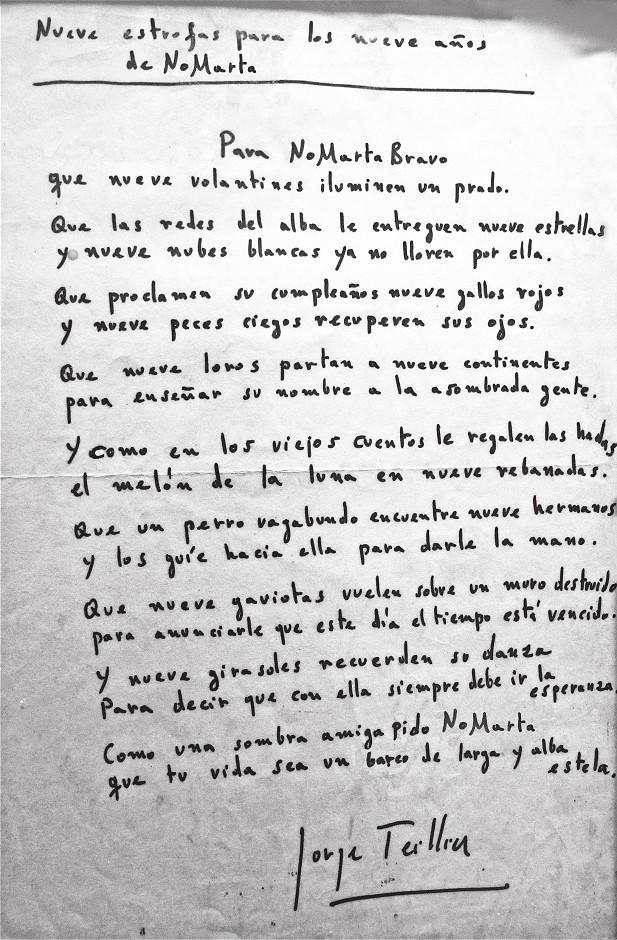 Nueve estrofas para los nueve años
de NoMarta
Para NoMarta Bravo
que nueve volantines iluminen un prado.
Que las redes del alba le entreguen nueve estrellas
y nueve nubes blancas ya no lloren por ella.
Que proclamen su cumpleaños nueve gallos rojos
y nueve peces ciegos recuperen sus ojos.
Que nueve loros partan a nueve continentes
para enseñar su nombre a la asombrada gente.
Y como en los viejos cuentos le regalen las hadas
el melón de la luna en nueve rebanadas.
Que un perro vagabundo encuentre nueve hermanos
y los guíe hacia ella para darle la mano.
Que nueve gaviotas vuelen sobre un muro destruido
para anunciarle que este día el tiempo está vencido.
Y nueve girasoles recuerden su danza
Para decir que con ella siempre debe ir la
esperanza.
Como una sombra amiga pido NoMarta
que tu vida sea un barco de larga y alba
estela.
Jorge Teillier